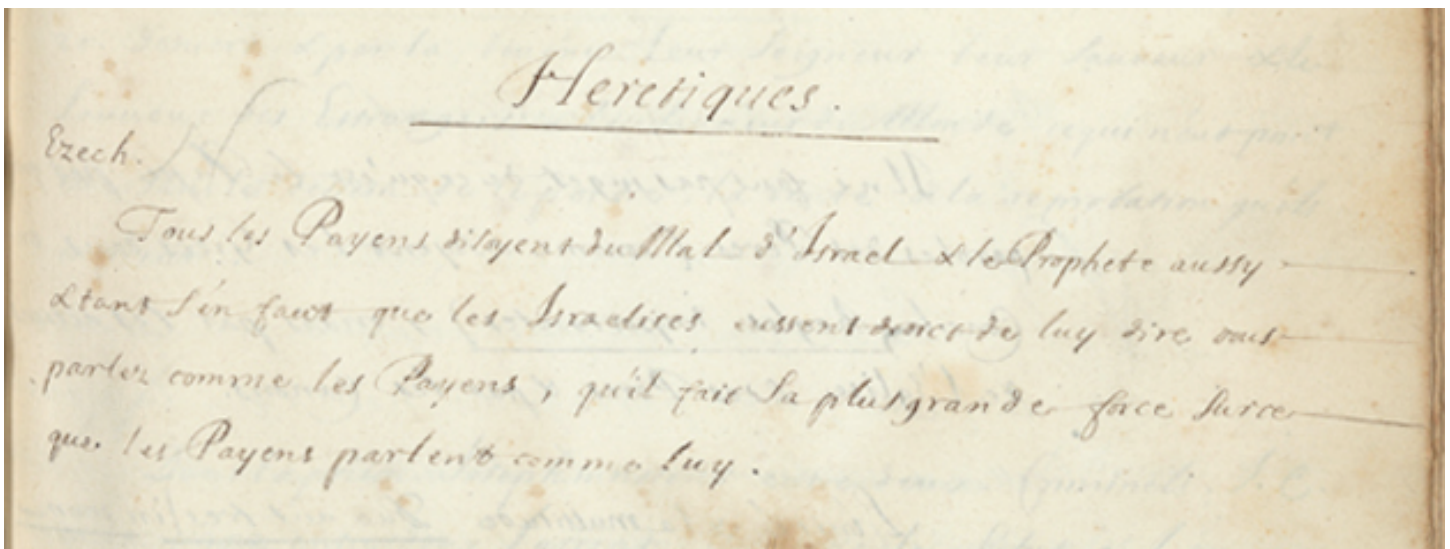 Heretiques.
Ezech.
Tous les Payens disoyent du Mal d'Israel & le Prophete aussy
& tant s'en faut que les Israelites eussent droict de luy dire vous
parlez comme les Payens, qu'il fait sa plus grande force sur ce
que les Payens parlent comme luy.